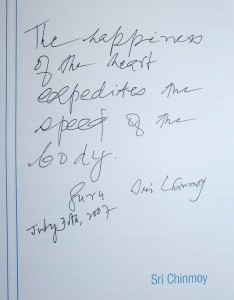 The happiness
of the heart
expedites the
speed of the
body.
Guru Sri Chinmoy
July 30th, 2007
Sri Chinmoy